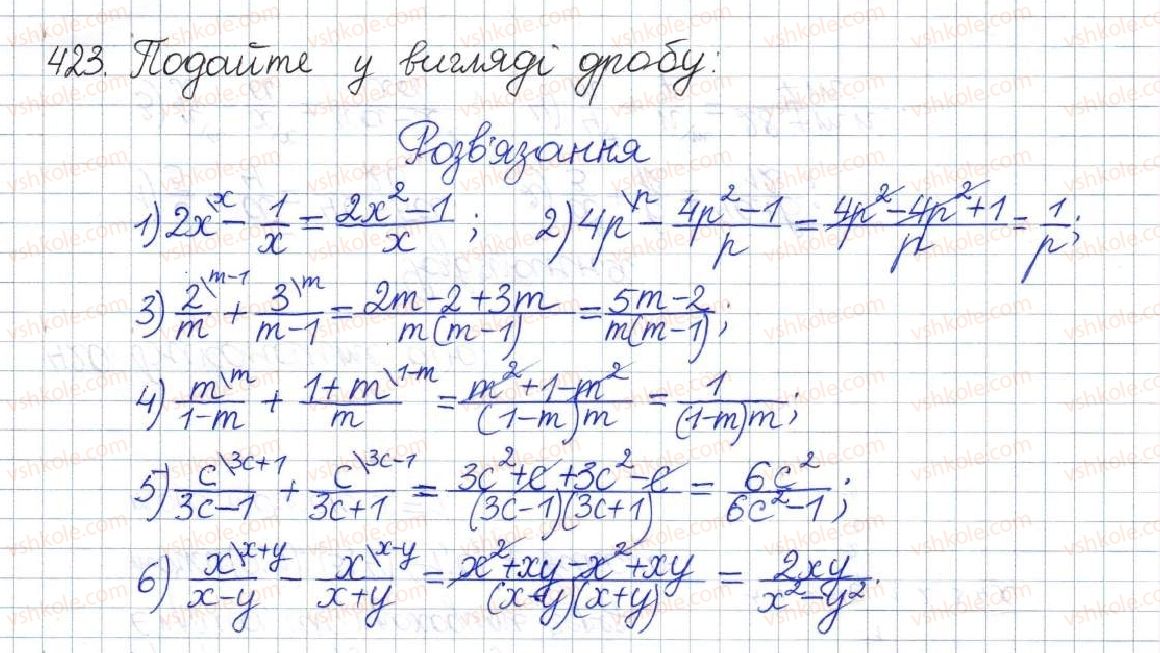 423. Подайте у вигляді дробу:
Розв'язання
1) 2x\x − 1/x = (2x² − 1)/x ; 2) 4p\p − (4p² − 1)/p = (4p² − 4p² + 1)/p = 1/p ;
3) 2\m−1/m + 3\m/(m−1) = (2m − 2 + 3m)/(m(m−1)) = (5m − 2)/(m(m−1)) ;
4) m\m/(1−m) + (1+m)\1−m/m = (m² + 1 − m²)/((1−m)m) = 1/((1−m)m) ;
5) c\3c+1/(3c−1) + c\3c−1/(3c+1) = (3c² + c + 3c² − c)/((3c−1)(3c+1)) = 6c²/(6c² − 1) ;
6) x\x+y/(x−y) − x\x−y/(x+y) = (x² + xy − x² + xy)/((x−y)(x+y)) = 2xy/(x² − y²) .